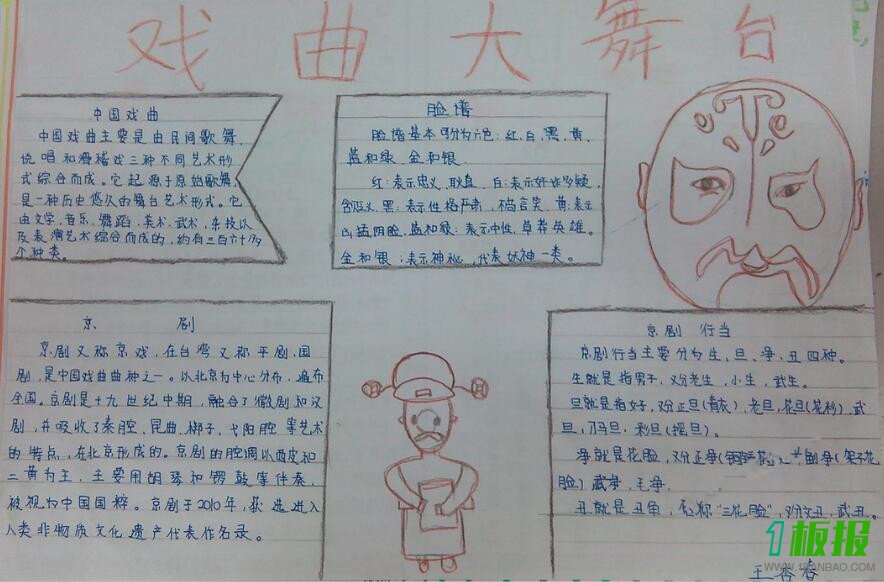 戏曲大舞台
中国戏曲
中国戏曲主要是由民间歌舞、
说唱和滑稽戏三种不同艺术形
式综合而成。它起源于原始歌舞,
是一种历史悠久的舞台艺术形式。它
由文学、音乐、舞蹈、美术、武术、杂技以
及表演艺术综合而成的,约有三百六十多
个种类。
脸谱
脸谱基本可分为六色:红、白、黑、黄、
蓝和绿、金和银.
红:表示忠义、耿直、白:表示奸诈多疑,
黑:表示性格严肃,不苟言笑、黄:表示
凶猛阴险、蓝和绿:表示中性,草莽英雄。
金和银:表示神秘,代表妖神一类。
京剧
京剧又称京戏,在台湾又称平剧、国
剧,是中国戏曲曲种之一。以北京为中心分布,遍布
全国。京剧是十九世纪中期,融合了徽剧和汉
剧,并吸收了秦腔、昆曲、梆子、弋阳腔等艺术
的特点,在北京形成的。京剧的腔调以西皮和
二黄为主,主要用胡琴和锣鼓等伴奏,
被视为中国国粹。京剧于2010年,获选进入
人类非物质文化遗产代表作名录。
京剧 行当
京剧行当主要分为生、旦、净、丑四种。
生就是指男子,又分老生,小生,武生。
旦就是指女子,又分正旦(青衣)、老旦、花旦(花衫)武
旦、刀马旦、彩旦(摇旦)。
净就是花脸,又分正净 副净(架子花
脸)武净,毛净。
丑就是丑角,“三花脸”,又分文丑、武丑。
1板报
WWW.1BANBAO.COM